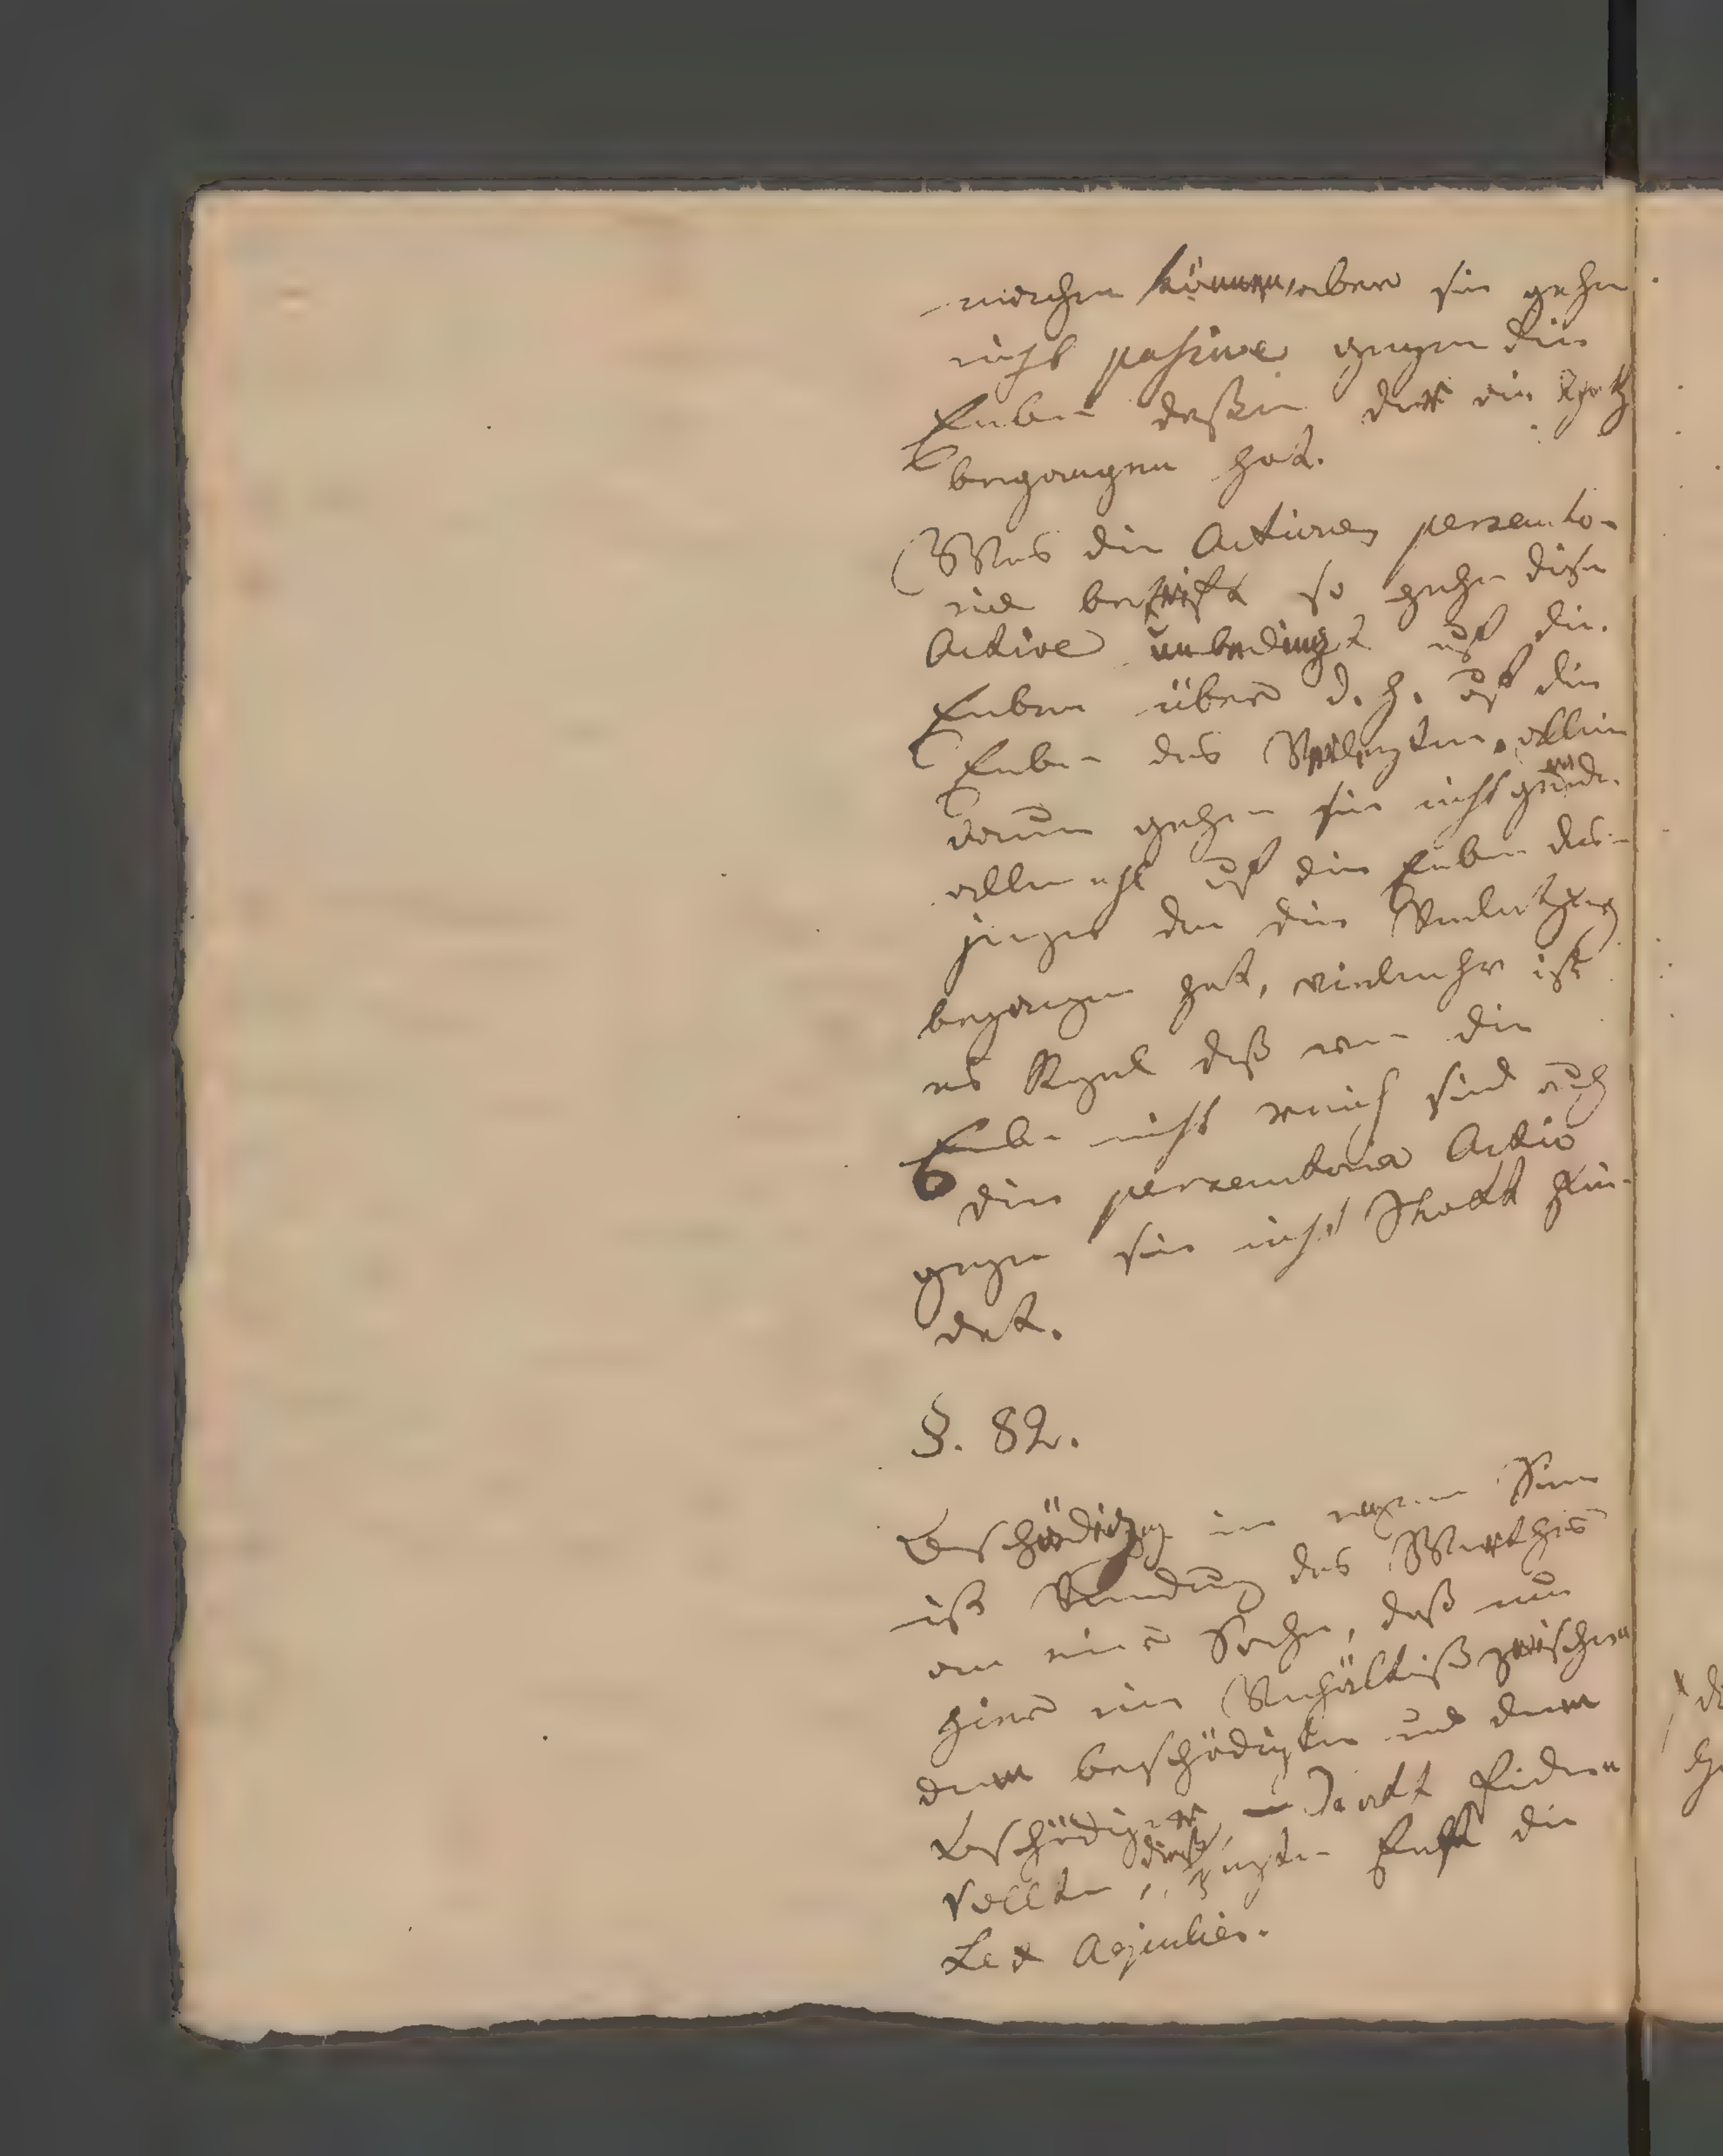 machen können, aber sie gehn
nicht passive gegen die
Erben deßen der ein
begangen hat.
Was die Actiones persecuto-
riae betrifft so gehn diese
Active unbedingt auf die
Erben über d. h. auf die
Erben des Verlezten, allein
darum gehen sie nicht gerade
allemahl auf die Erben des-
jenigen der die Verletzung
begangen hat, vielmehr ist
es Regel daß wenn die
Erben nicht reich sind auch
die persecutoria Actio
gegen sie nicht Statt fin-
det.
§. 82.
Beschädigung im engern Sinn
ist Minderung des Werthes
an einer Sache, daß nun
hier ein Verhältniß zwischen
dem beschädigten und dem
Beschädiger Statt finden
sollte, dieß zeigte erst die
Lex Aquilia.